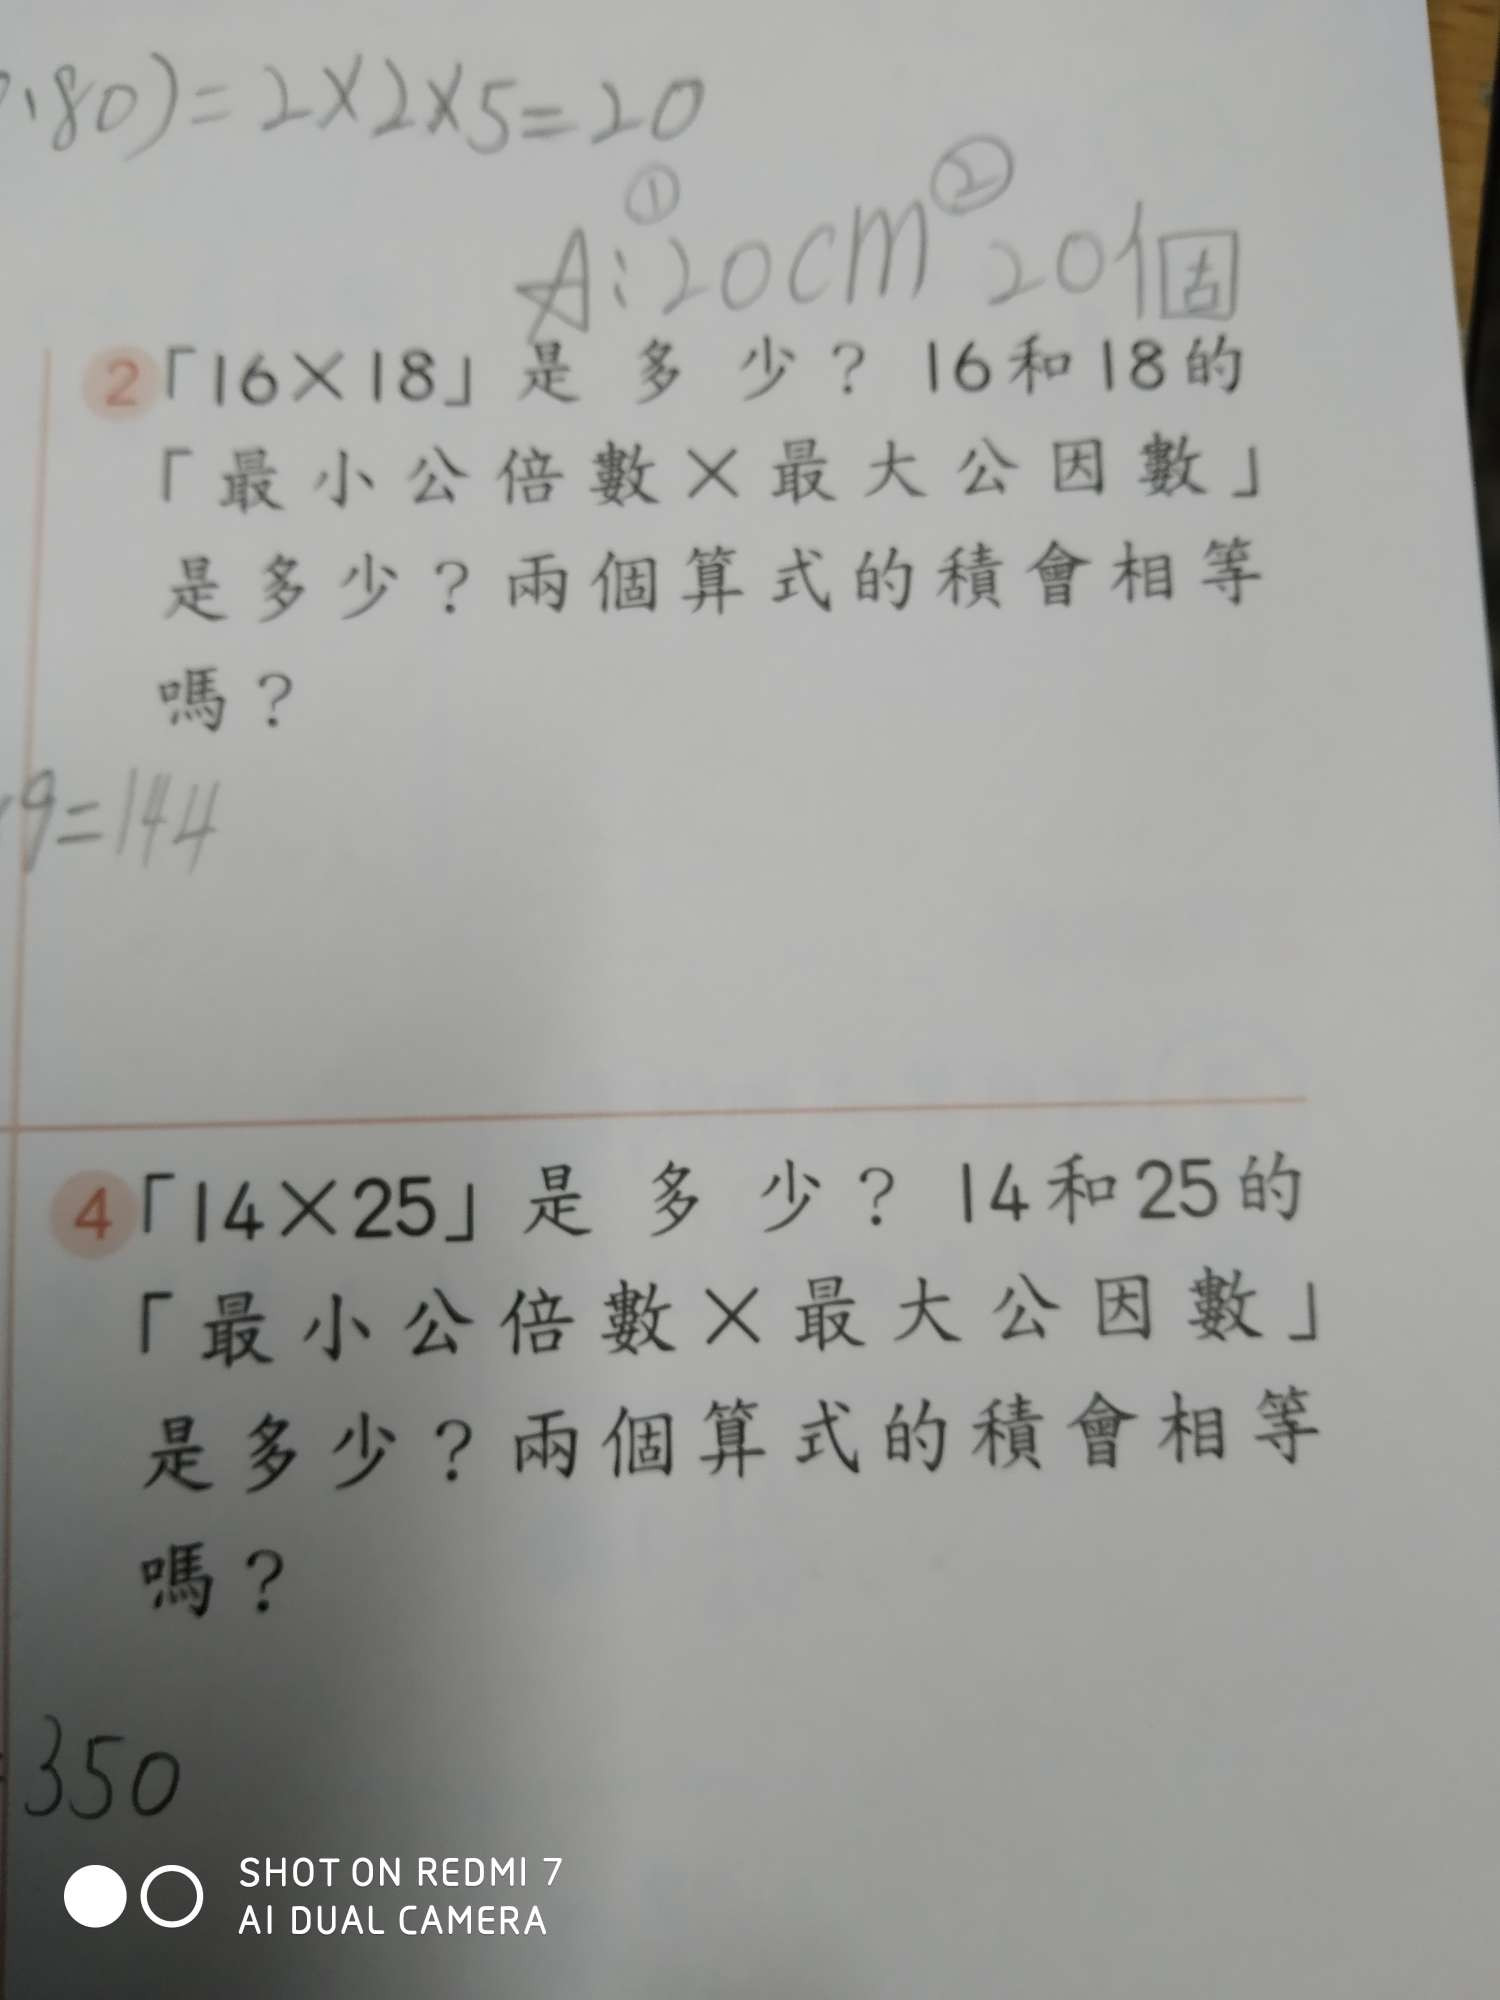 80)=2×2×5=20
① ②
A:20cm 20個
2「16×18」是多少？16和18的
「最小公倍數×最大公因數」
是多少？兩個算式的積會相等
嗎？
9=144
4「14×25」是多少？14和25的
「最小公倍數×最大公因數」
是多少？兩個算式的積會相等
嗎？
350
SHOT ON REDMI 7
AI DUAL CAMERA